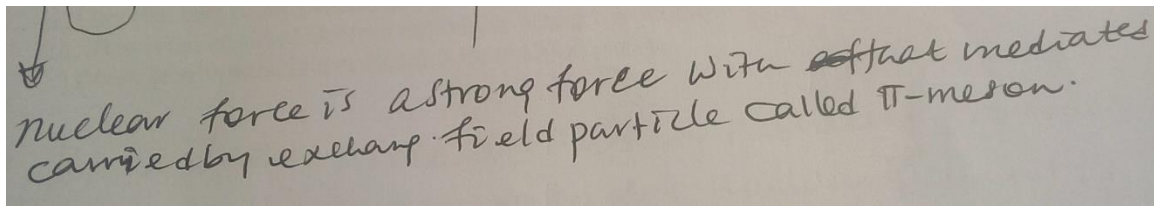 nuclear force is a strong force with that mediated
carried by exchang. field particle called π-meson.